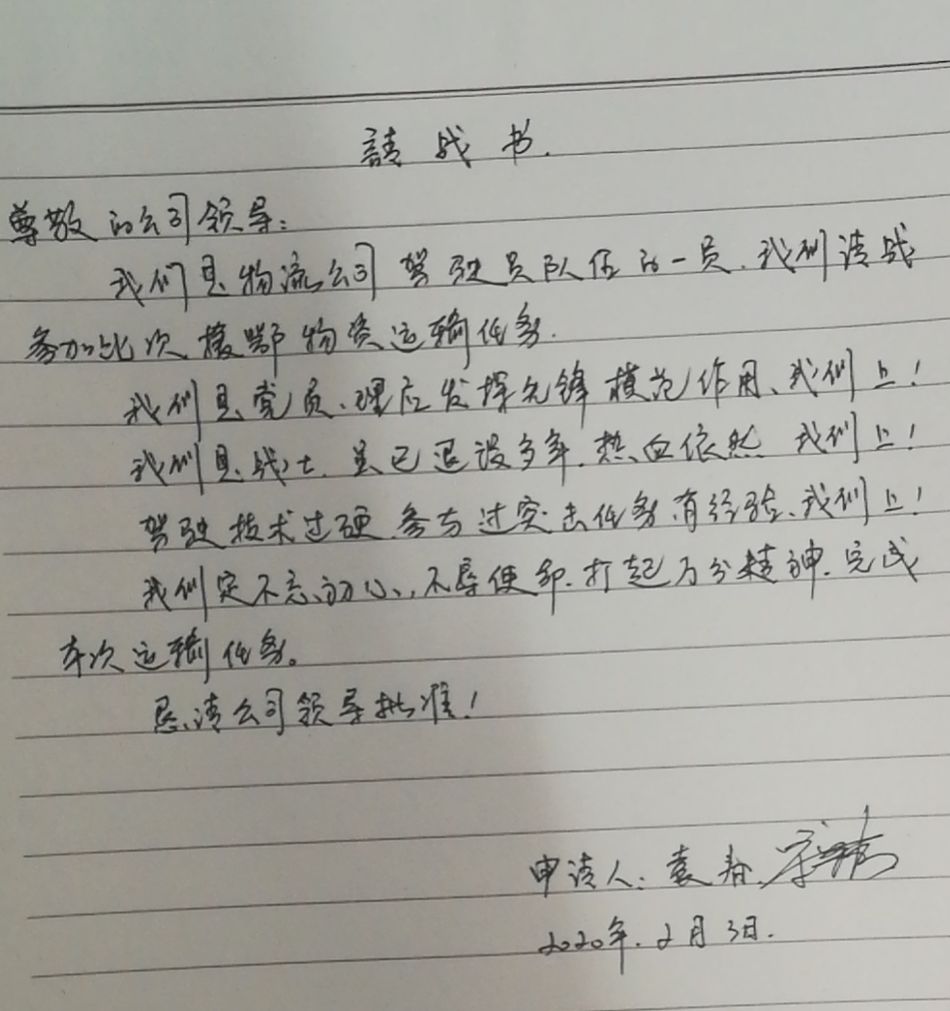 請战书.
尊敬的公司领导:
我们是物流公司驾驶员队伍的一员.我们请战
参加此次援鄂物资运输任务.
我们是党员、理应发挥先锋模范作用、我们上!
我们是战士.虽已退役多年.热血依然 我们上!
驾驶技术过硬 参与过突击任务有经验、我们上!
我们定不忘初心、不辱使命.打起万分精神.完成
本次运输任务。
恳请公司领导批准!
申请人:袁春
2020年.2月3日.